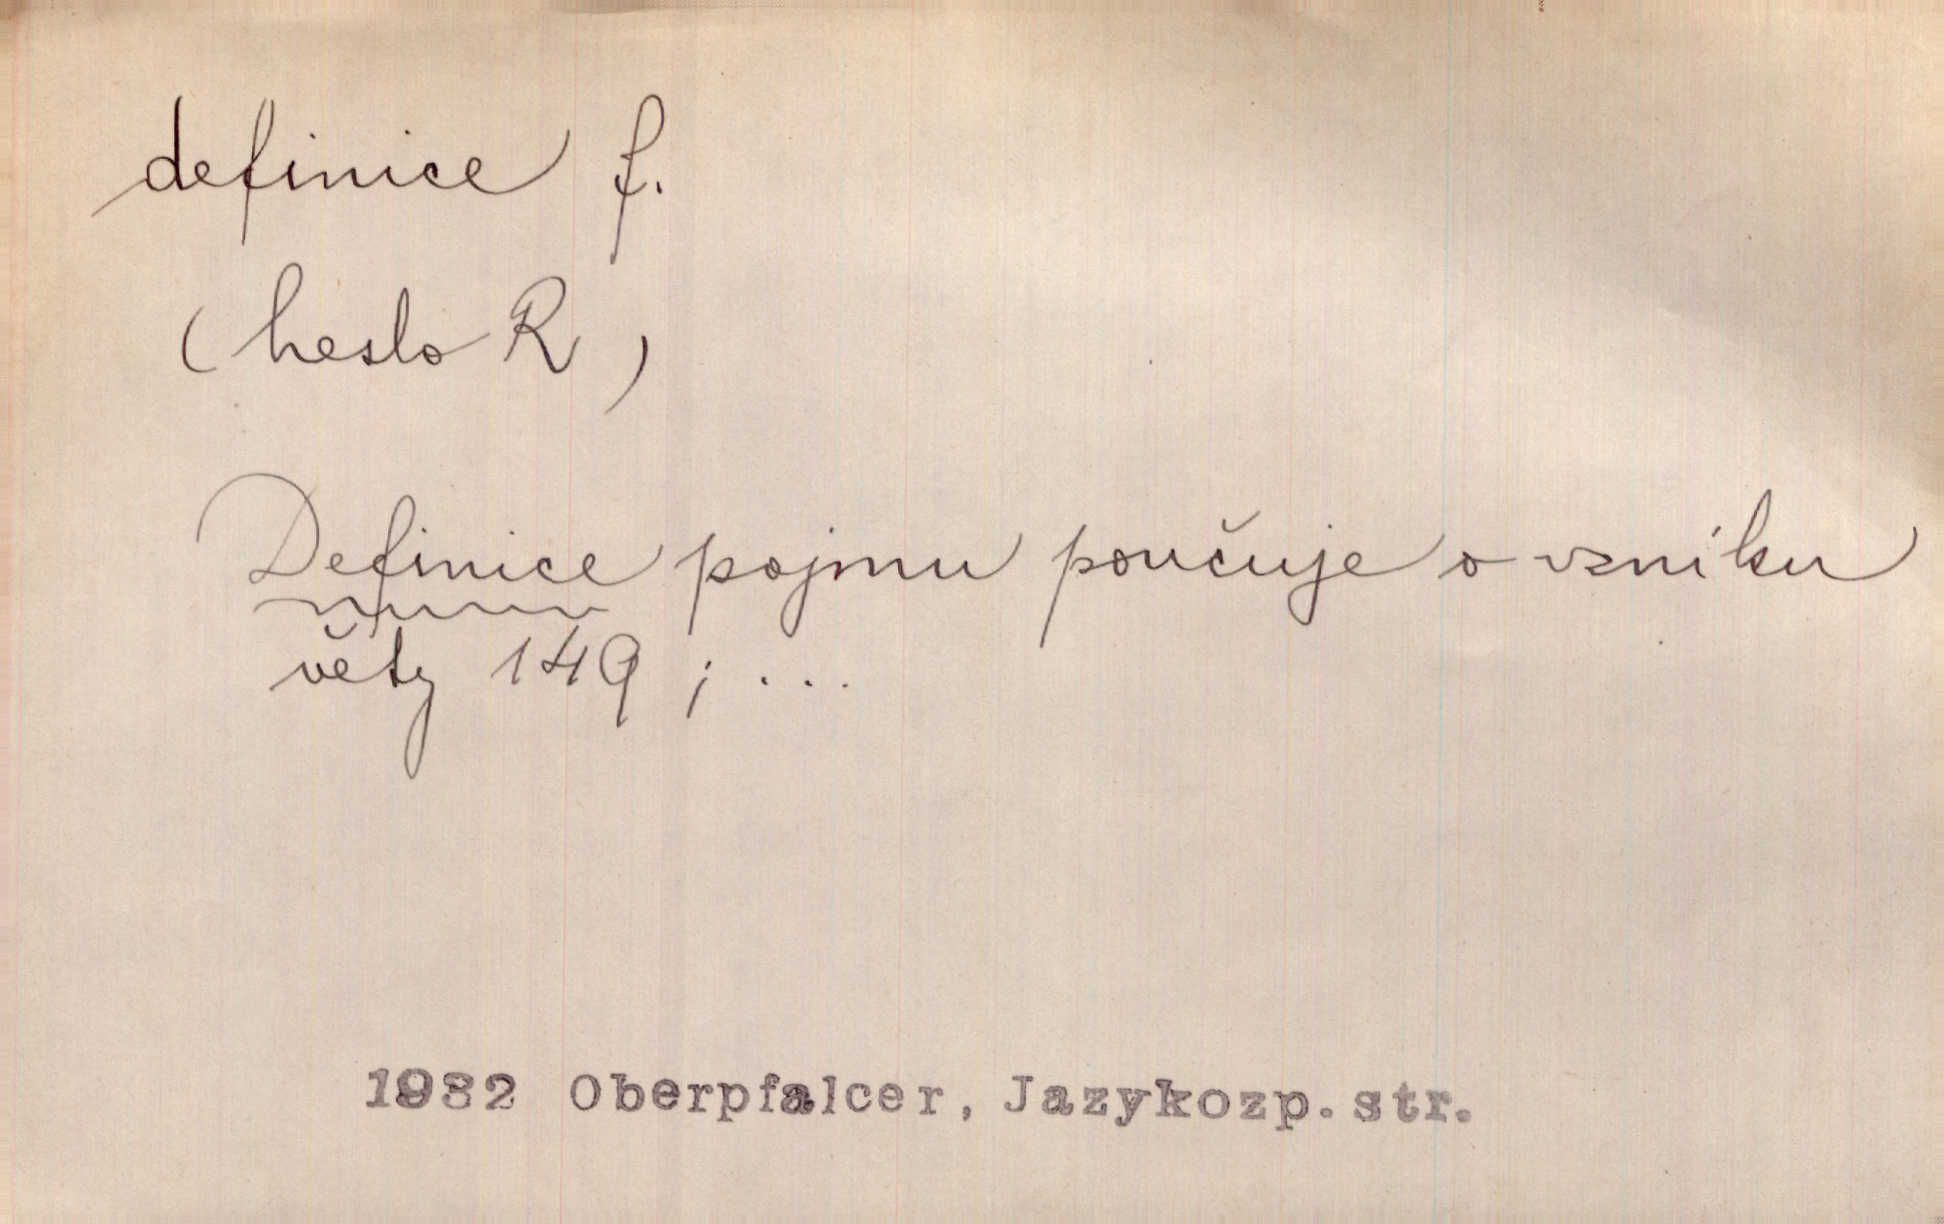 definice f.
(heslo R)
Definice pojmu poučuje o vzniku
věty 149; ...
1932 Oberpfalcer, Jazykozp. str.